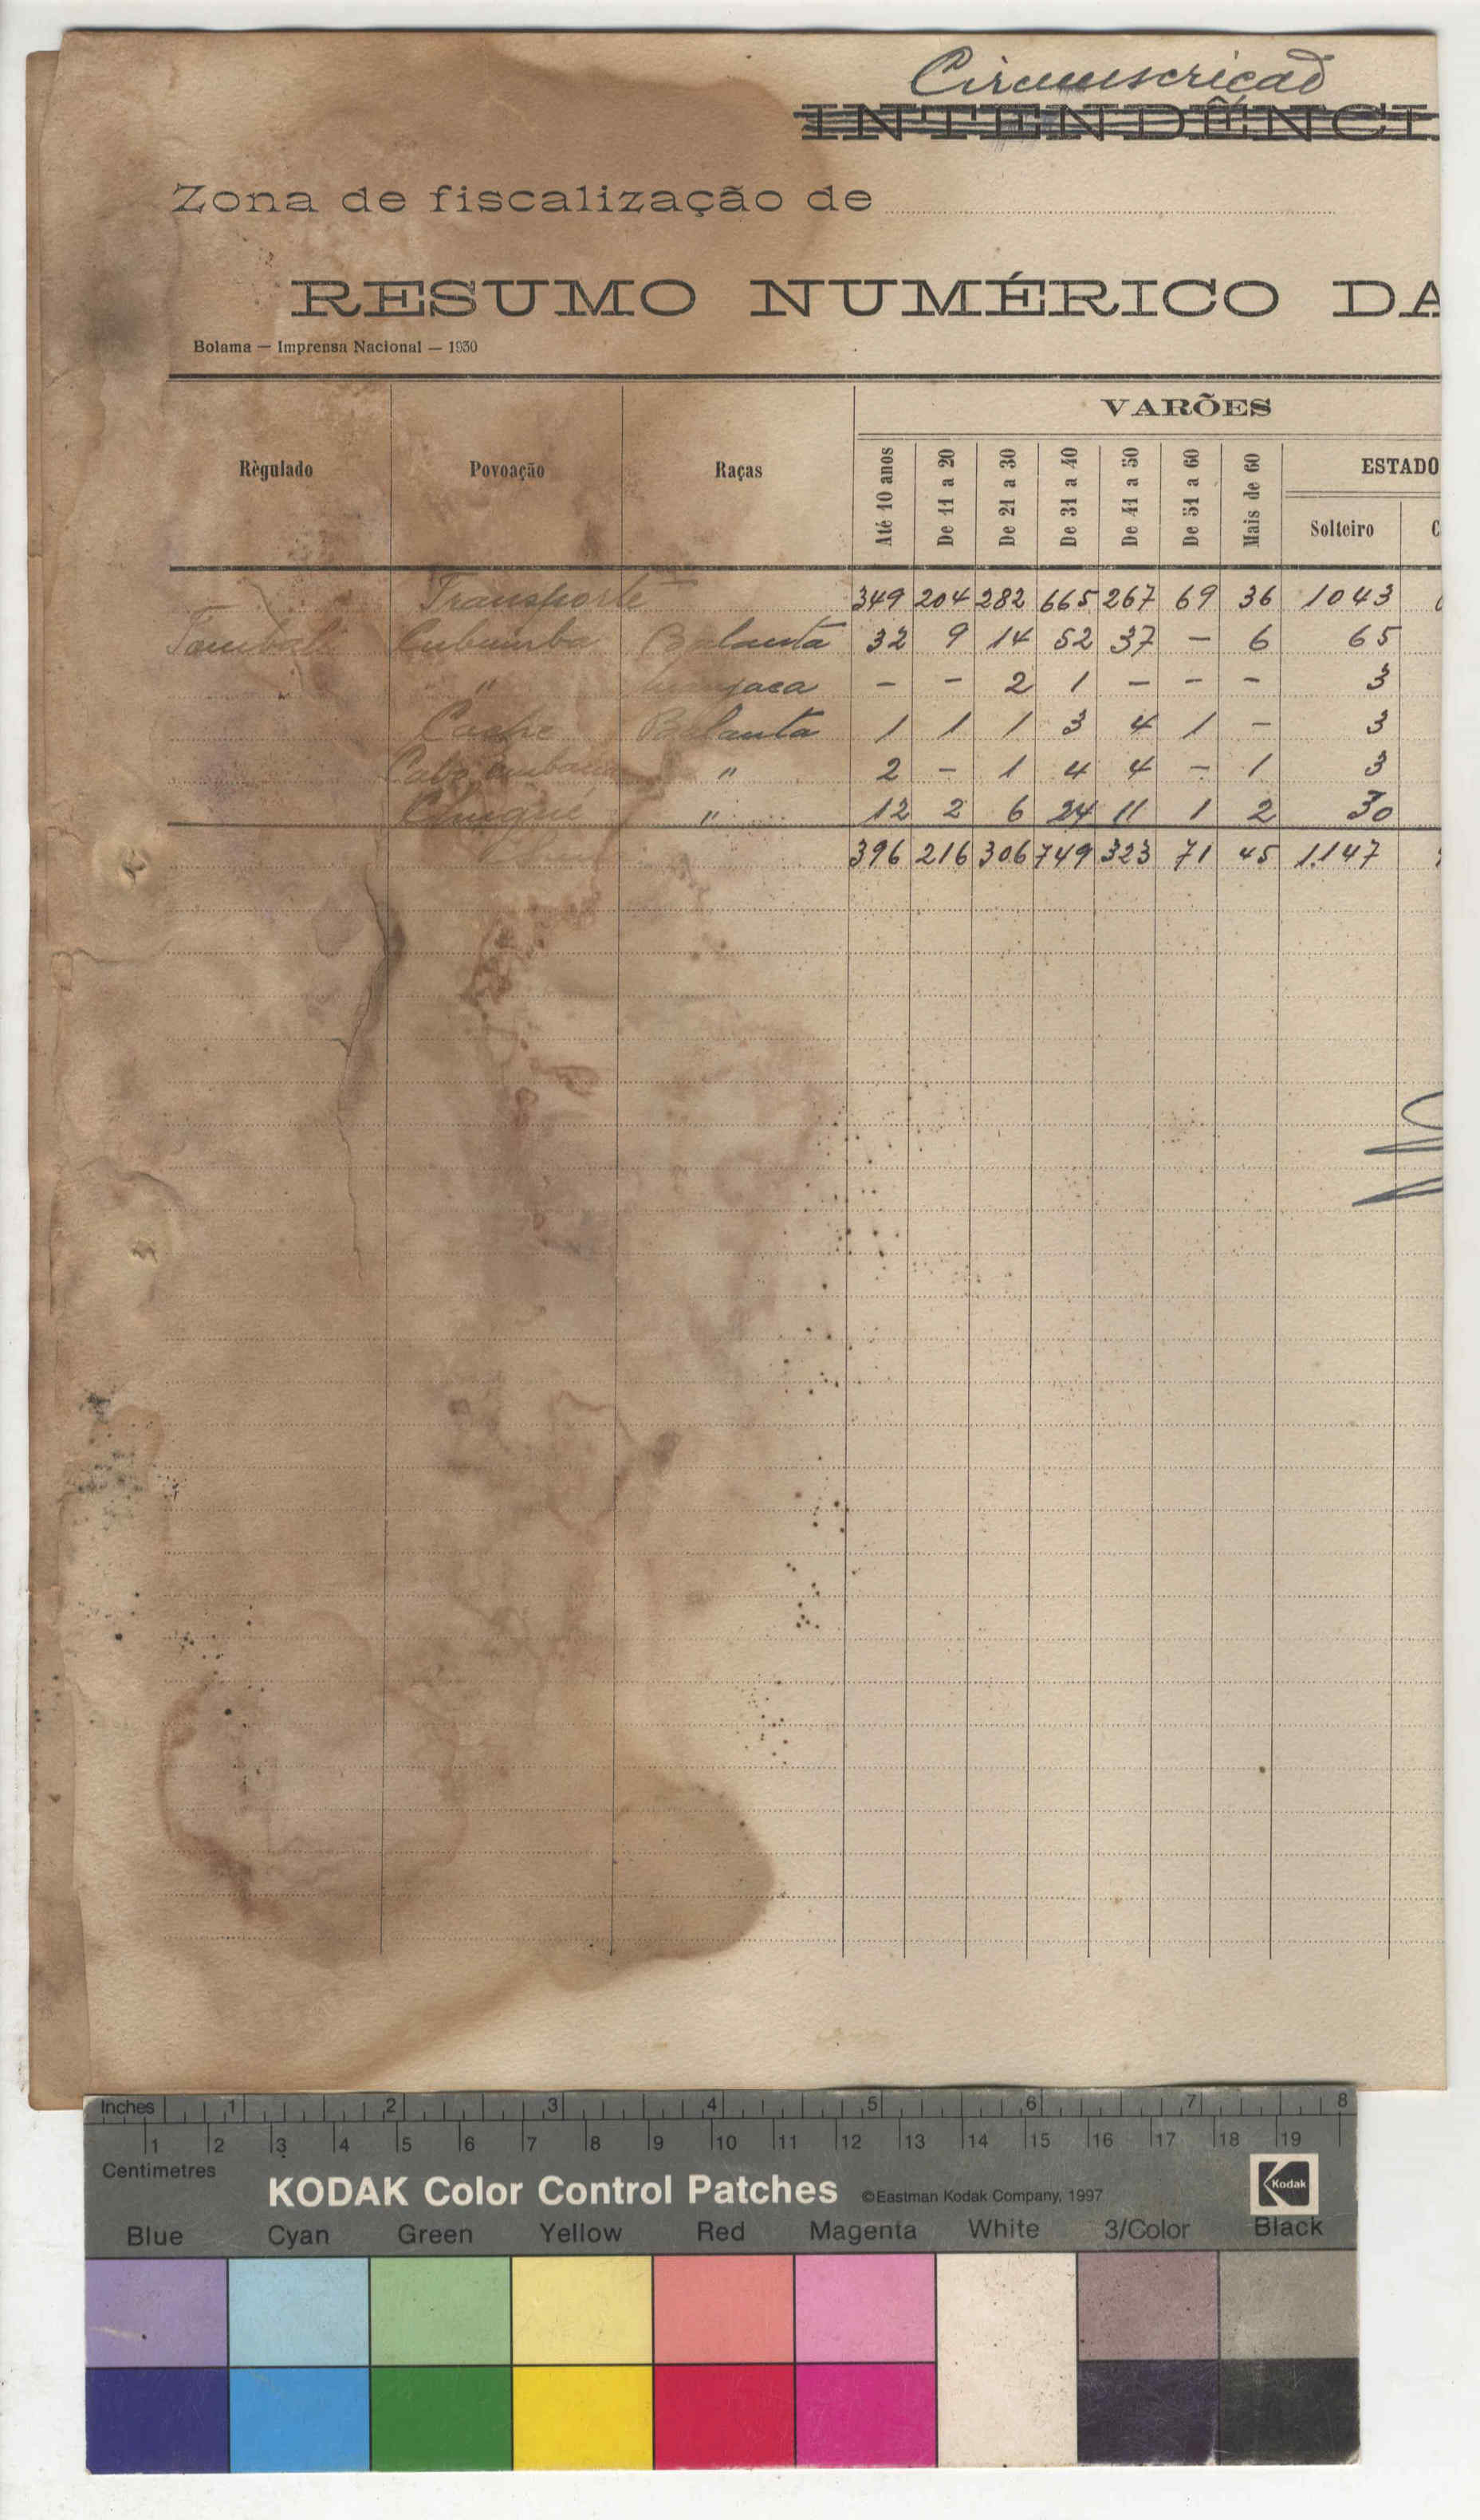 Circunscrição
INTENDÊNCI
Zona de fiscalização de
RESUMO NUMÉRICO DA
Bolama — Imprensa Nacional — 1930
VARÕES
Règulado Povoação Raças Até 10 anos De 11 a 20 De 21 a 30 De 31 a 40 De 41 a 50 De 51 a 60 Mais de 60 ESTADO
Solteiro C
Transporte 349 204 282 665 267 69 36 1043
Tombali Cubumba Balanta 32 9 14 52 37 - 6 65
" - - 2 1 - - - 3
Balanta 1 1 1 3 4 1 - 3
" 2 - 1 4 4 - 1 3
" 12 2 6 24 11 1 2 30
396 216 306 749 323 71 45 1.147
Inches 1 2 3 4 5 6 7 8
1 2 3 4 5 6 7 8 9 10 11 12 13 14 15 16 17 18 19
Centimetres
KODAK Color Control Patches ©Eastman Kodak Company, 1997 Kodak
Blue Cyan Green Yellow Red Magenta White 3/Color Black